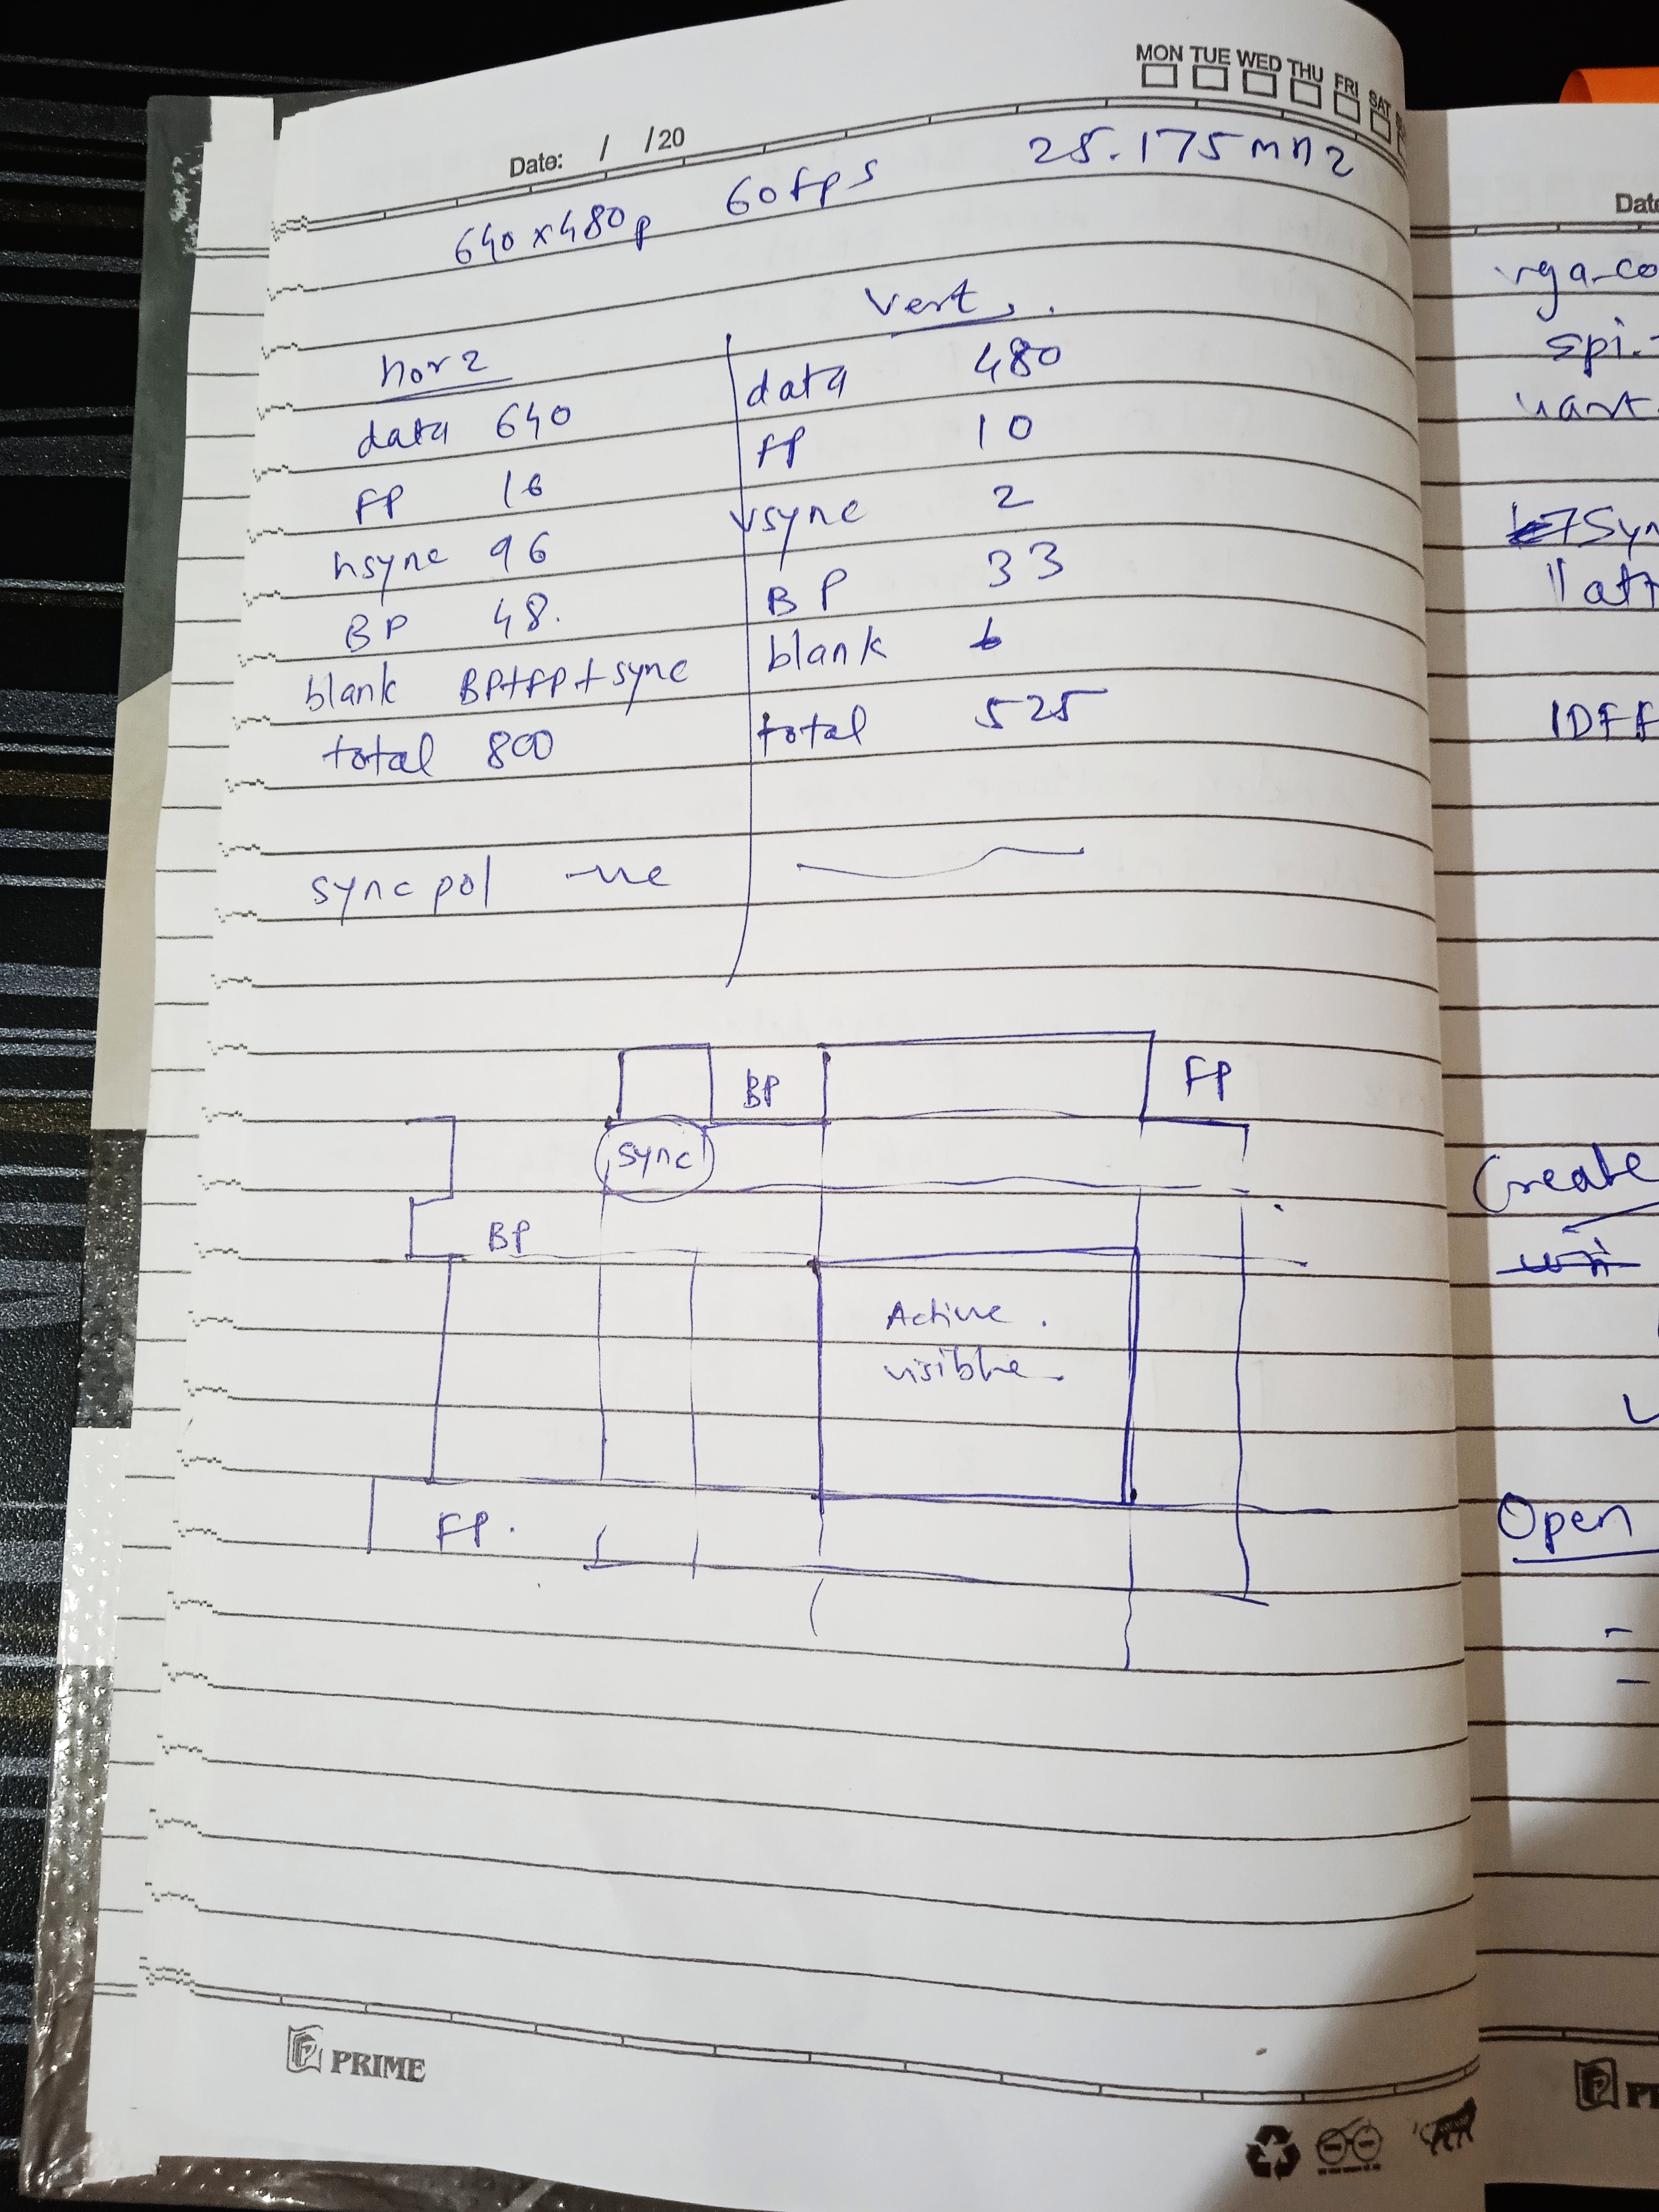 MON TUE WED THU FRI SAT
Date: / /20
640x480p 60fps 25.175mhz
horz
Vert.
data 640
data 480
FP 16
FP 10
hsync 96
vsync 2
BP 48.
BP 33
blank BP+FP+sync
blank
total 800
total 525
sync pol -ve
BP FP
sync
BP
Active.
visible
FP.
PRIME
Date
vga_co
spi.
uart
Sync
IDFF
Create
Open